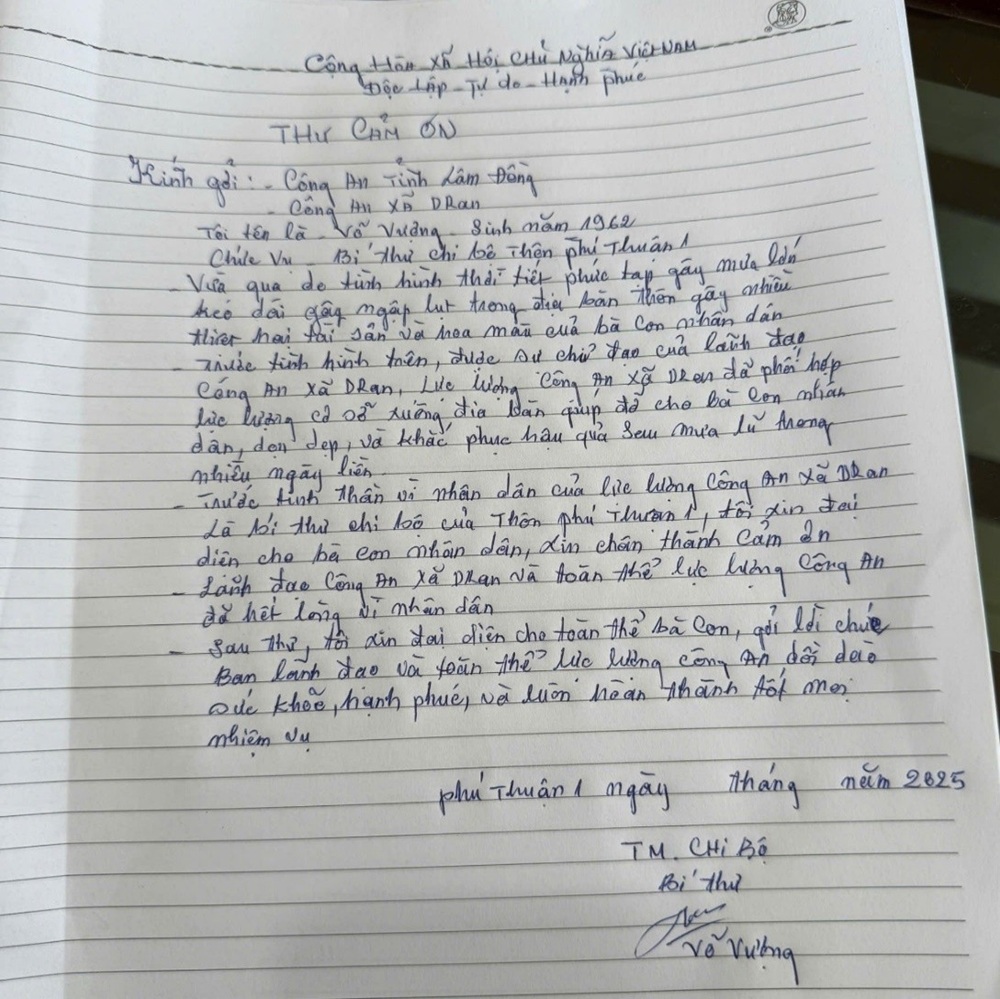 Cộng Hòa Xã Hội Chủ Nghĩa Việt Nam
Độc lập - Tự do - Hạnh phúc
THƯ CẢM ƠN
Kính gởi: - Công An Tỉnh Lâm Đồng
- Công An Xã DRan
Tôi tên là - Võ Vượng - Sinh năm 1962
Chức vụ - Bí thư chi bộ Thôn phú Thuận 1
- Vừa qua do tình hình thời tiết phức tạp gây mưa lớn
kéo dài gây ngập lụt trong địa bàn thôn gây nhiều
thiệt hại tài sản và hoa màu của bà con nhân dân
- Trước tình hình trên, được sự chỉ đạo của lãnh đạo
Công An Xã DRan, Lực lượng Công An Xã DRan đã phối hợp
lực lượng cơ sở xuống địa bàn giúp đỡ cho bà con nhân
dân, dọn dẹp, và khắc phục hậu quả sau mưa lũ trong
nhiều ngày liền.
- Trước tinh thần vì nhân dân của lực lượng Công An Xã DRan
Là bí thư chi bộ của Thôn phú Thuận 1, tôi xin đại
diện cho bà con nhân dân, xin chân thành cảm ơn
- Lãnh đạo Công An Xã DRan và toàn thể lực lượng Công An
đã hết lòng vì nhân dân
- Sau thư, tôi xin đại diện cho toàn thể bà con, gởi lời chúc
Ban lãnh đạo và toàn thể lực lượng công An dồi dào
sức khỏe, hạnh phúc, và luôn hoàn thành tốt mọi
nhiệm vụ
phú Thuận 1 ngày tháng năm 2025
TM. CHI BỘ
Bí thư
Võ Vượng